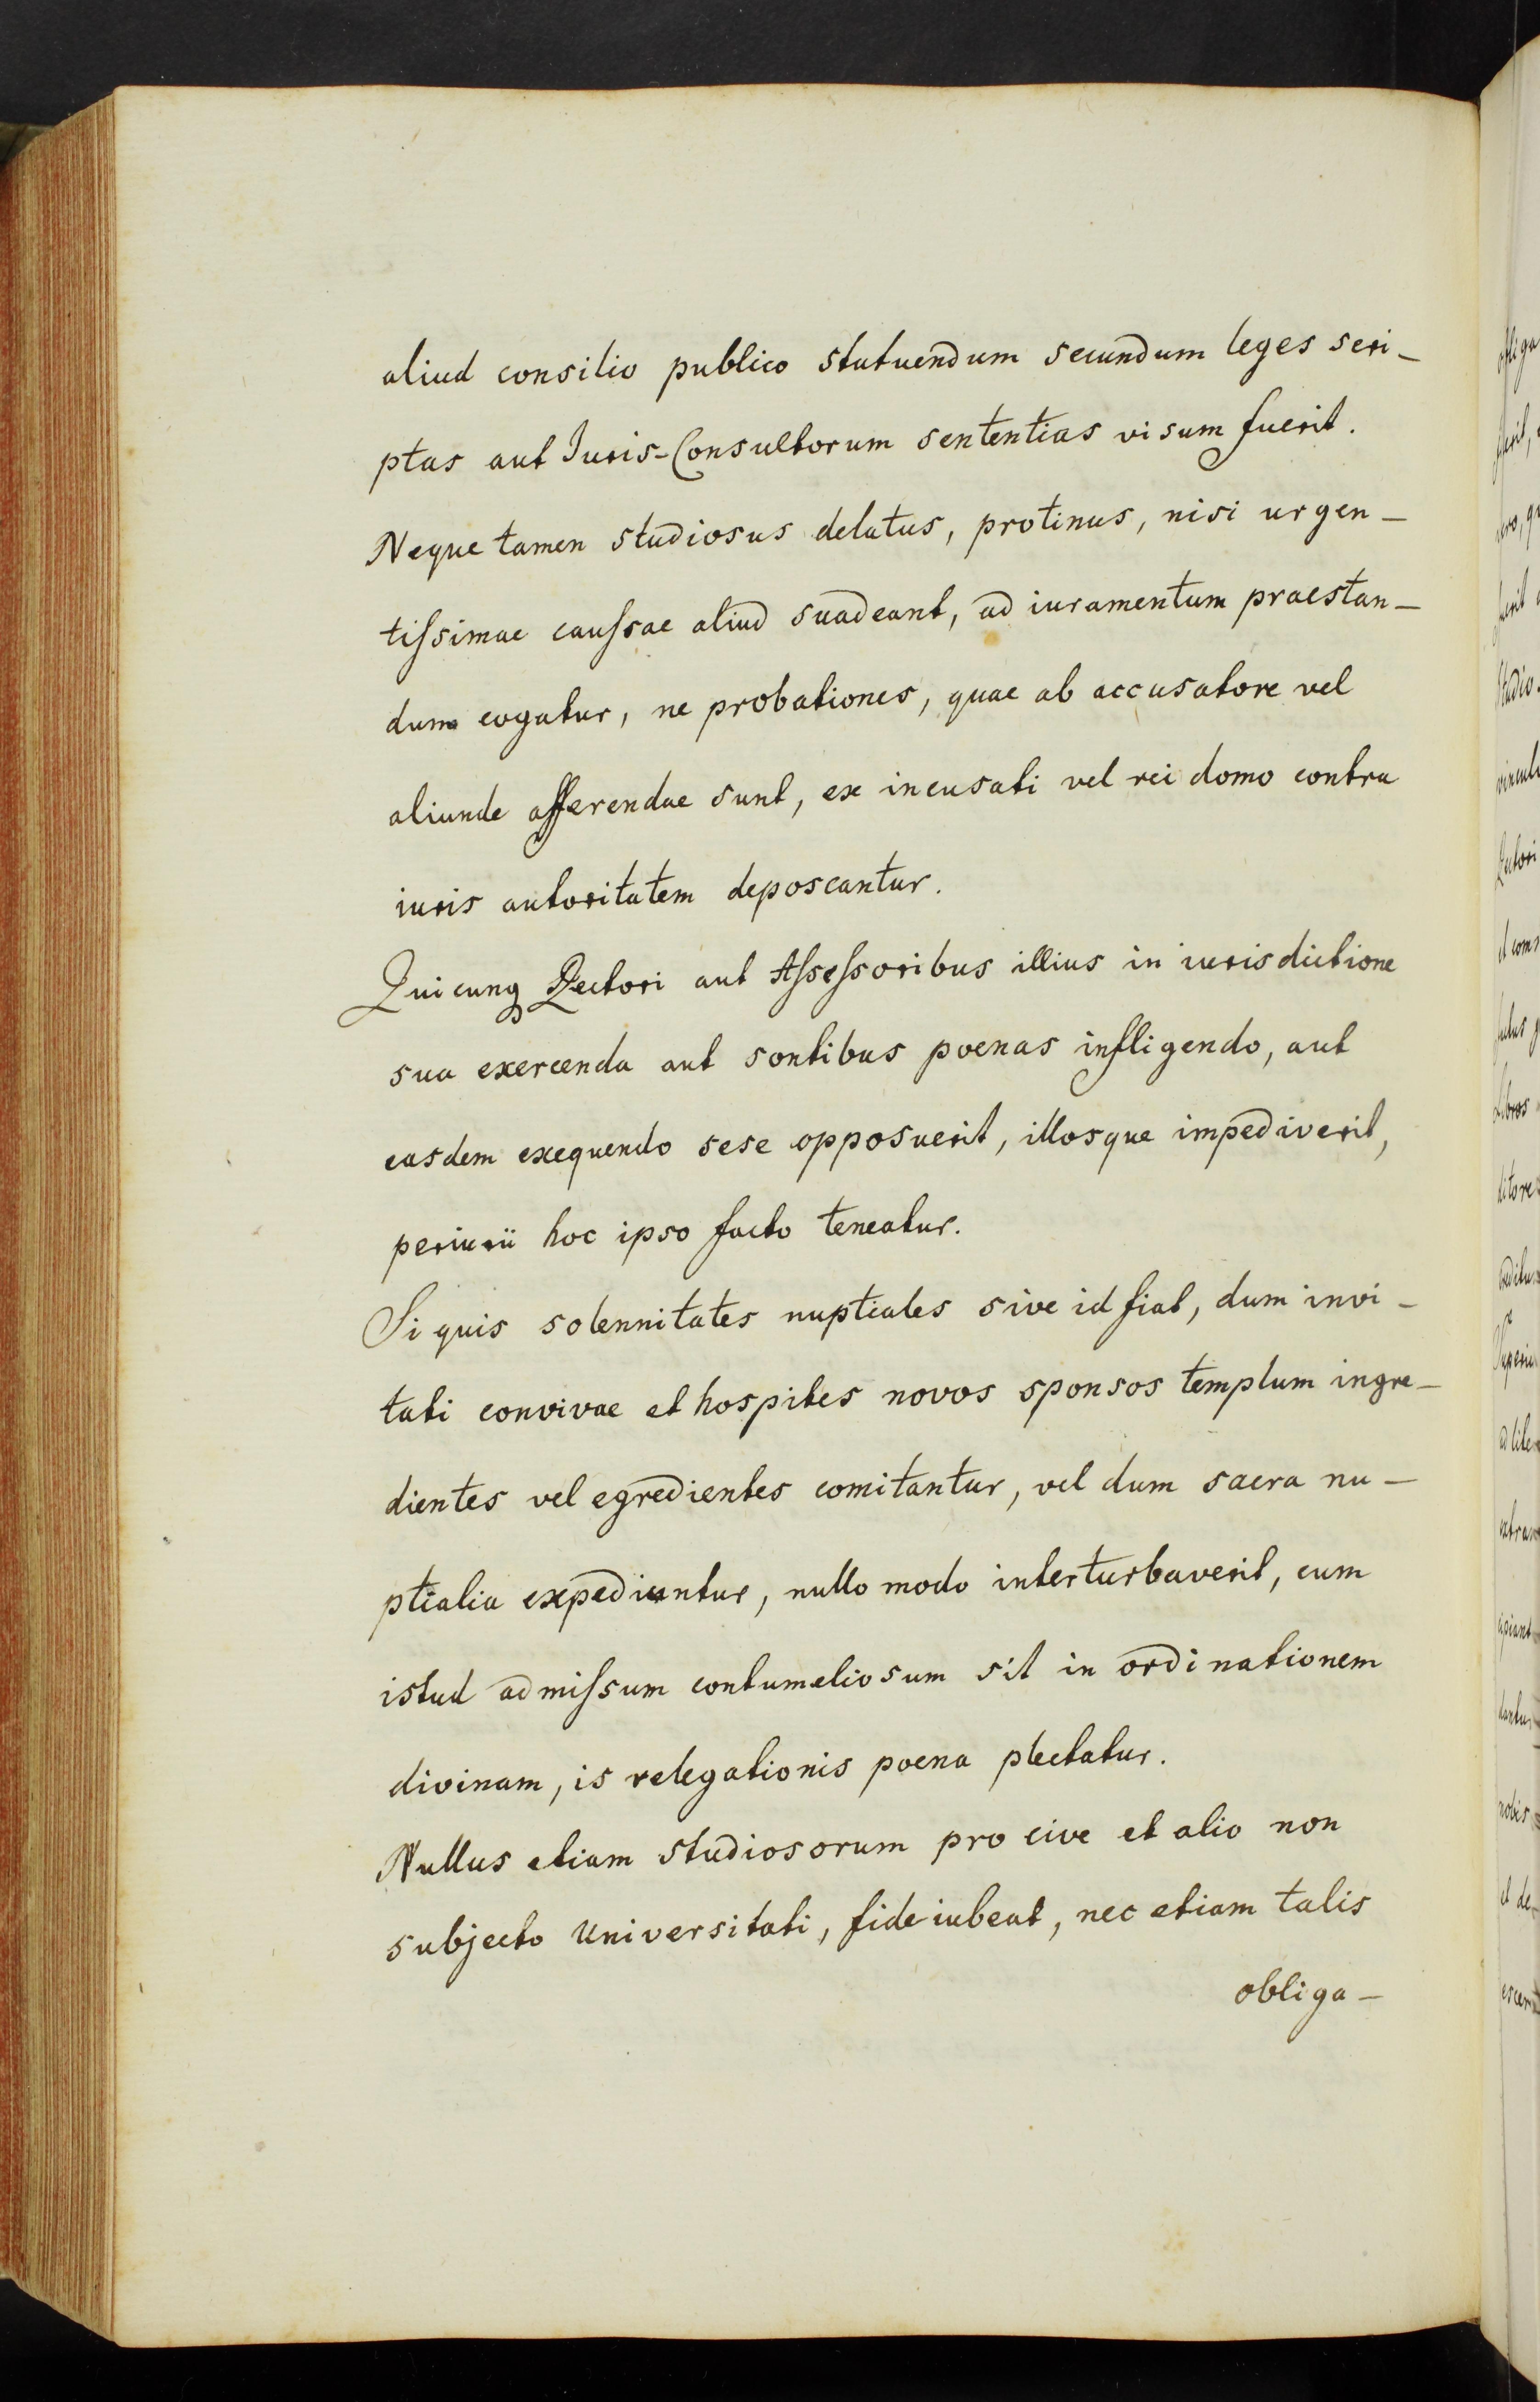 aliud consilio publico statuendum secundum leges scri-
ptas aut Juris-Consultorum sententias visum fuerit.
Neque tamen studiosus delatus, protinus, nisi urgen-
tissimae caussae aliud suadeant, ad iuramentum praestan-
dum cogatur, ne probationes, quae ab accusatore vel
aliunde afferendae sunt, ex incusati vel rei domo contra
iuris autoritatem deposcantur.
Quicunq Rectori aut Assessoribus illius in iurisdictione
sua exercenda aut sontibus poenas infligendo, aut
easdem exequendo sese opposuerit, illosque impediverit,
periurii hoc ipso facto teneatur.
Si quis solennitates nuptiales sive id fiat, dum invi-
tati convivae et hospites novos sponsos templum ingre-
dientes vel egredientes comitantur, vel dum sacra nu-
ptialia expediuntur, nullo modo interturbaverit, cum
istud admissum contumeliosum sit in ordinationem
divinam, is relegationis poena plectatur.
Nullus etiam studiosorum pro cive et alio non
subjecto Universitati, fideiubeat, nec etiam talis
obliga-